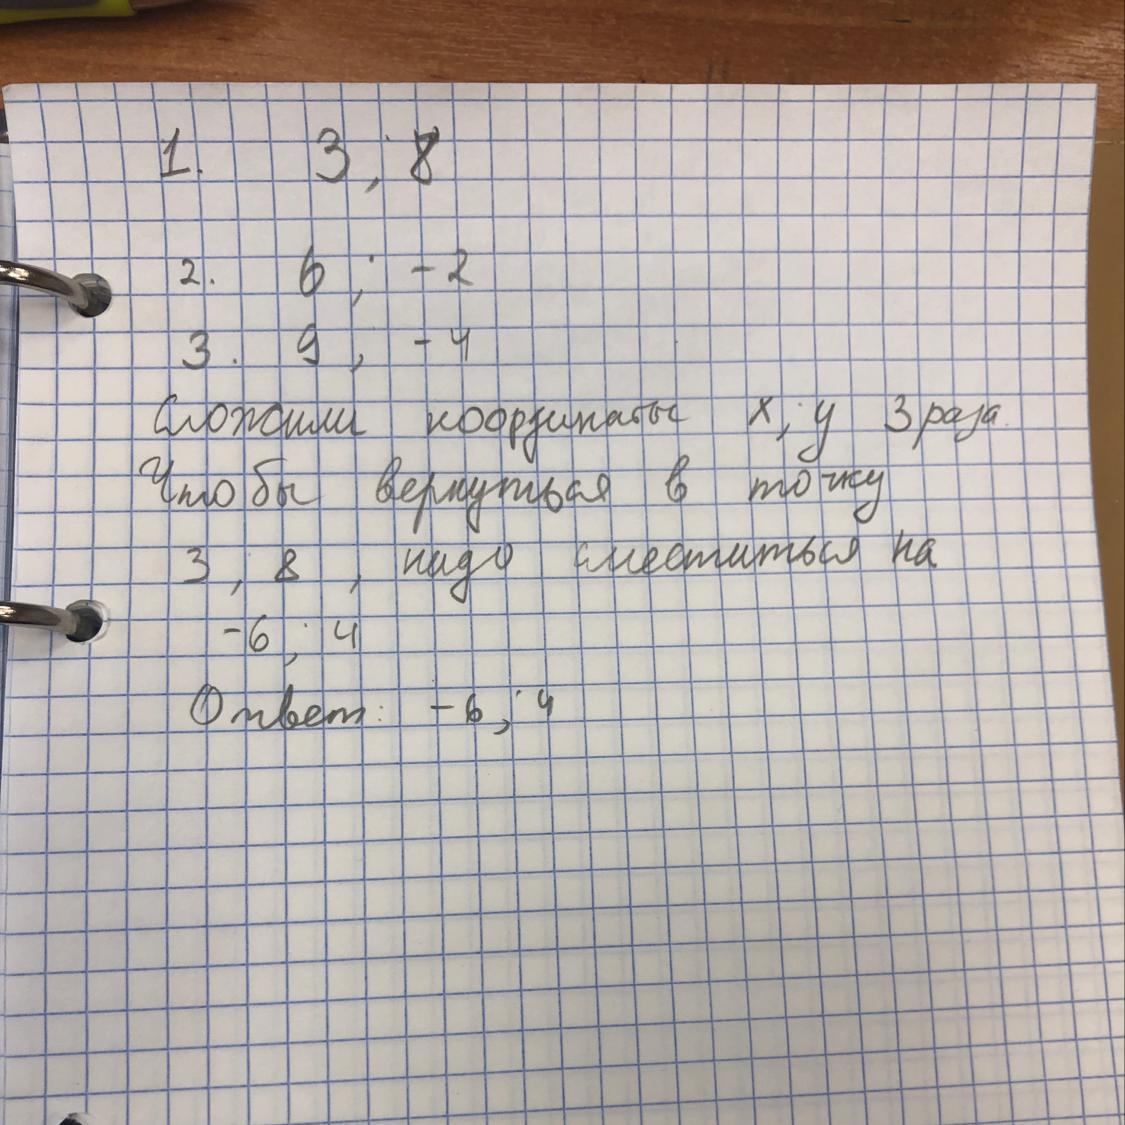 1. 3; 8
2. 6; -2
3. 9; -4
Сложили координаты x; y 3 раза.
Чтобы вернуться в точку
3; 8, надо сместиться на
-6; 4
Ответ: -6; 4